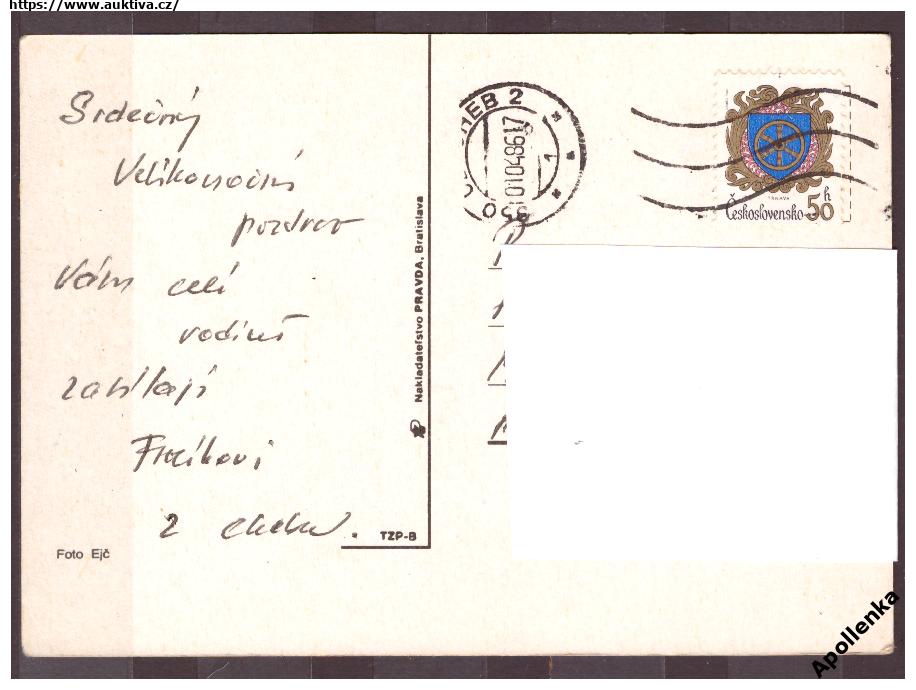 https://www.auktiva.cz/
Srdečný
Velikonoční
pozdrav
Vám celé
rodině
zasílají
z Chebu.
Foto Ejč
TZP-B
Nakladateľstvo PRAVDA, Bratislava
CHEB 2
01048617
1
350
TRNAVA
Československo 50 h
Apollenka